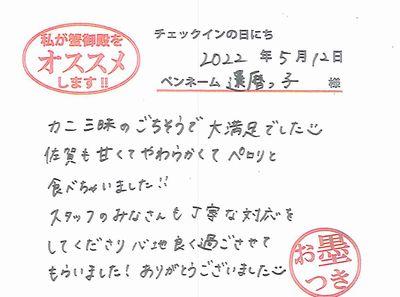 私が蟹御殿を
オススメ
します!!
チェックインの日にち
2022 年 5月 12日
ペンネーム 還暦っ子 様
カニ三昧のごちそうで大満足でした
佐賀も甘くてやわらかくてペロリと
食べちゃいました!!
スタッフのみなさんも丁寧な対応を
してくださり心地良く過ごさせて
もらいました! ありがとうございました
お墨
つき